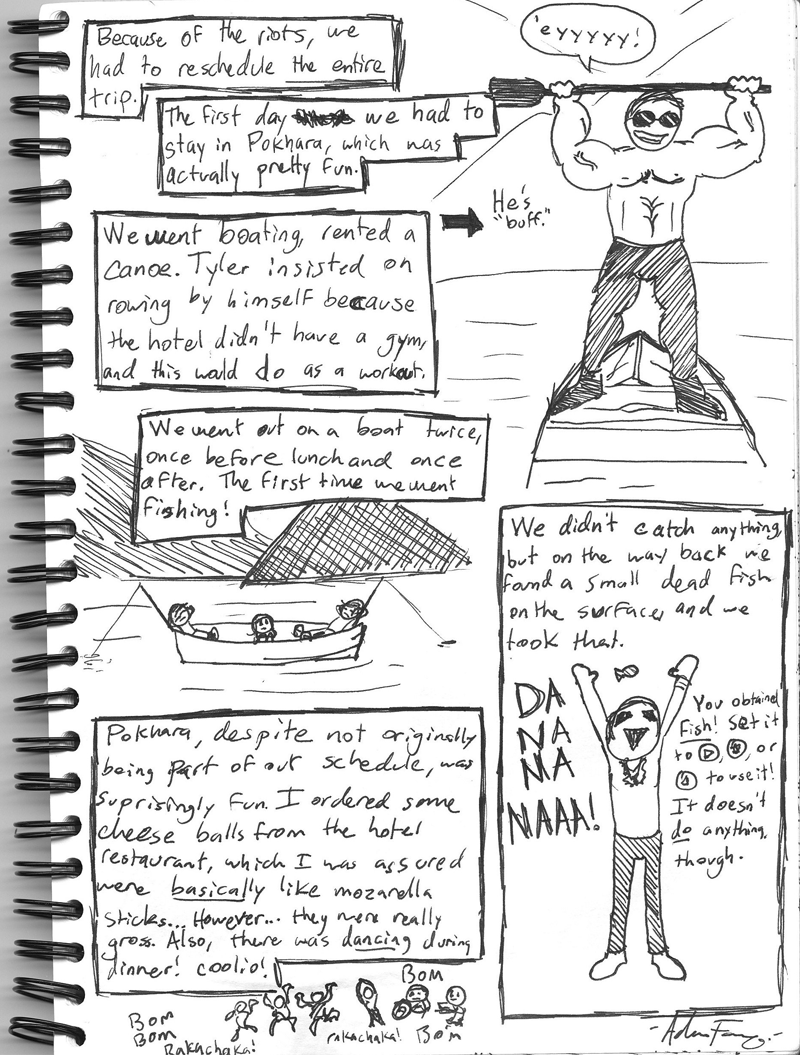 Because of the riots, we
had to reschedule the entire
trip.
'eyyyyy!
The first day we had to
stay in Pokhara, which was
actually pretty fun.
He's
"buff."
We went boating, rented a
canoe. Tyler insisted on
rowing by himself because
the hotel didn't have a gym,
and this would do as a workout.
We went out on a boat twice,
once before lunch and once
after. The first time we went
fishing!
We didn't catch anything,
but on the way back we
found a small dead fish
on the surface, and we
took that.
DA
NA
NA
NAAA!
You obtained
Fish! Set it
to
or
to use it!
It doesn't
do anything,
though.
Pokhara, despite not originally
being part of out schedule, was
suprisingly fun. I ordered some
cheese balls from the hotel
restaurant, which I was assured
were basically like mozarella
sticks... However... they were really
gross. Also, there was dancing during
dinner! coolio!
BOM
BOM
BOM
Rakachaka!
rakachaka!
BOM